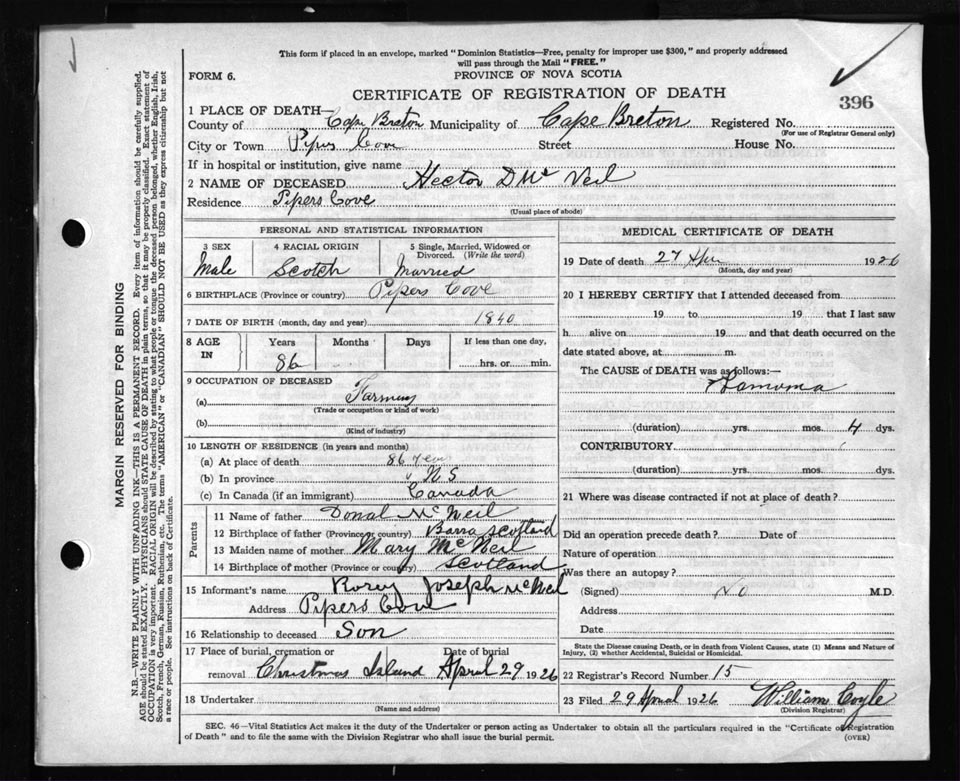 This form if placed in an envelope, marked "Dominion Statistics—Free, penalty for improper use $300," and properly addressed
will pass through the Mail "FREE."
FORM 6.
PROVINCE OF NOVA SCOTIA
CERTIFICATE OF REGISTRATION OF DEATH
396
1 PLACE OF DEATH—
County of Cape Breton Municipality of Cape Breton Registered No.
(For use of Registrar General only)
City or Town Pipers Cove Street House No.
If in hospital or institution, give name
2 NAME OF DECEASED Hector D Mc Neil
Residence Pipers Cove
(Usual place of abode)
PERSONAL AND STATISTICAL INFORMATION
3 SEX 4 RACIAL ORIGIN 5 Single, Married, Widowed or Divorced. (Write the word)
Male Scotch Married
6 BIRTHPLACE (Province or country) Pipers Cove
7 DATE OF BIRTH (month, day and year) 1840
8 AGE IN Years Months Days If less than one day,
86 hrs. or min.
9 OCCUPATION OF DECEASED
(a) Farming
(Trade or occupation or kind of work)
(b)
(Kind of industry)
10 LENGTH OF RESIDENCE (in years and months)
(a) At place of death 86 years
(b) In province N S
(c) In Canada (if an immigrant) Canada
Parents
11 Name of father Donal McNeil
12 Birthplace of father (Province or country) Barra Scotland
13 Maiden name of mother Mary McNeil
14 Birthplace of mother (Province or country) Scotland
15 Informant's name Rory Joseph McNeil
Address Pipers Cove
16 Relationship to deceased Son
17 Place of burial, cremation or removal Christmas Island Date of burial April 29 1926
18 Undertaker
(Name and address)
MEDICAL CERTIFICATE OF DEATH
19 Date of death 27 Apr 1926
(Month, day and year)
20 I HEREBY CERTIFY that I attended deceased from
19 to 19 that I last saw
h alive on 19 and that death occurred on the
date stated above, at m.
The CAUSE of DEATH was as follows:—
(duration) yrs. mos. 4 dys.
CONTRIBUTORY
(duration) yrs. mos. dys.
21 Where was disease contracted if not at place of death?
Did an operation precede death? Date of
Nature of operation
Was there an autopsy?
(Signed) No M.D.
Address
Date
State the Disease causing Death, or in death from Violent Causes, state (1) Means and Nature of
Injury, (2) whether Accidental, Suicidal or Homicidal.
22 Registrar's Record Number 15
23 Filed 29 April 1926 William Coyle
(Division Registrar)
SEC. 46—Vital Statistics Act makes it the duty of the Undertaker or person acting as Undertaker to obtain all the particulars required in the "Certificate of Registration
of Death" and to file the same with the Division Registrar who shall issue the burial permit.
(OVER)
MARGIN RESERVED FOR BINDING
N.B.—WRITE PLAINLY WITH UNFADING INK—THIS IS A PERMANENT RECORD. Every item of information should be carefully supplied.
AGE should be stated EXACTLY. PHYSICIANS should STATE CAUSE OF DEATH in plain terms, so that it may be properly classified. Exact statement of
OCCUPATION is very important. RACIAL ORIGIN will be described by stating to what people or tongue the deceased person belonged, whether English, Irish,
Scotch, French, German, Russian, Ruthenian, etc. The terms "AMERICAN" or "CANADIAN" SHOULD NOT BE USED as they express citizenship but not
a race or people. See instructions on back of Certificate.